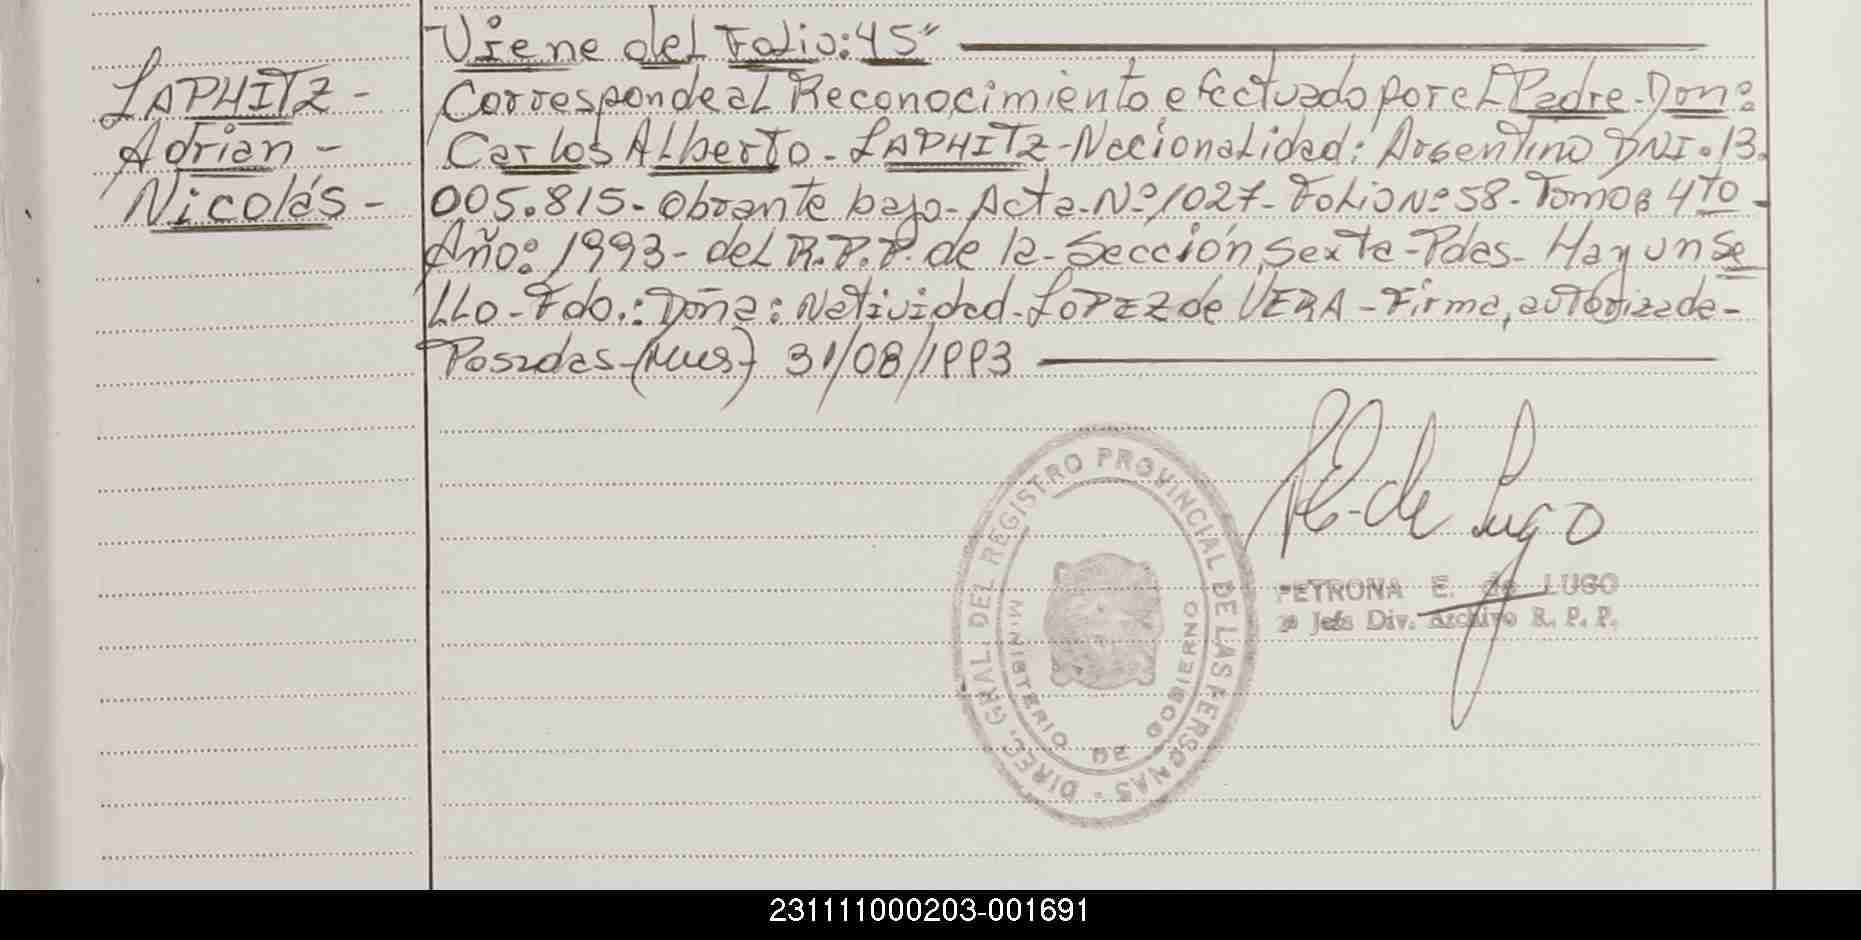 Viene del Folio: 45"
LAPHITZ -
Adrian -
Nicolás -
Corresponde al Reconocimiento efectuado por el Padre - Don:
Carlos Alberto - LAPHITZ - Nacionalidad: Argentino DNI. 13.
005.815 - obrante bajo - Acta - Nº 1027 - Folio Nº 58 - Tomo: 4to -
Año: 1993 - del R.P.P. de la - Sección Sexta - Pdas - Hay un Se
llo - Fdo.: Doña: Natividad - LOPEZ de VERA - Firma, autorizada -
Posadas - (Mnes) 31/08/1993
PE. de Lugo
DIREC. GRAL. DEL REGISTRO PROVINCIAL DE LAS PERSONAS -
MINISTERIO DE GOBIERNO
PETRONA E. de LUGO
2º Jefa Div. Archivo R. P. P.
231111000203-001691